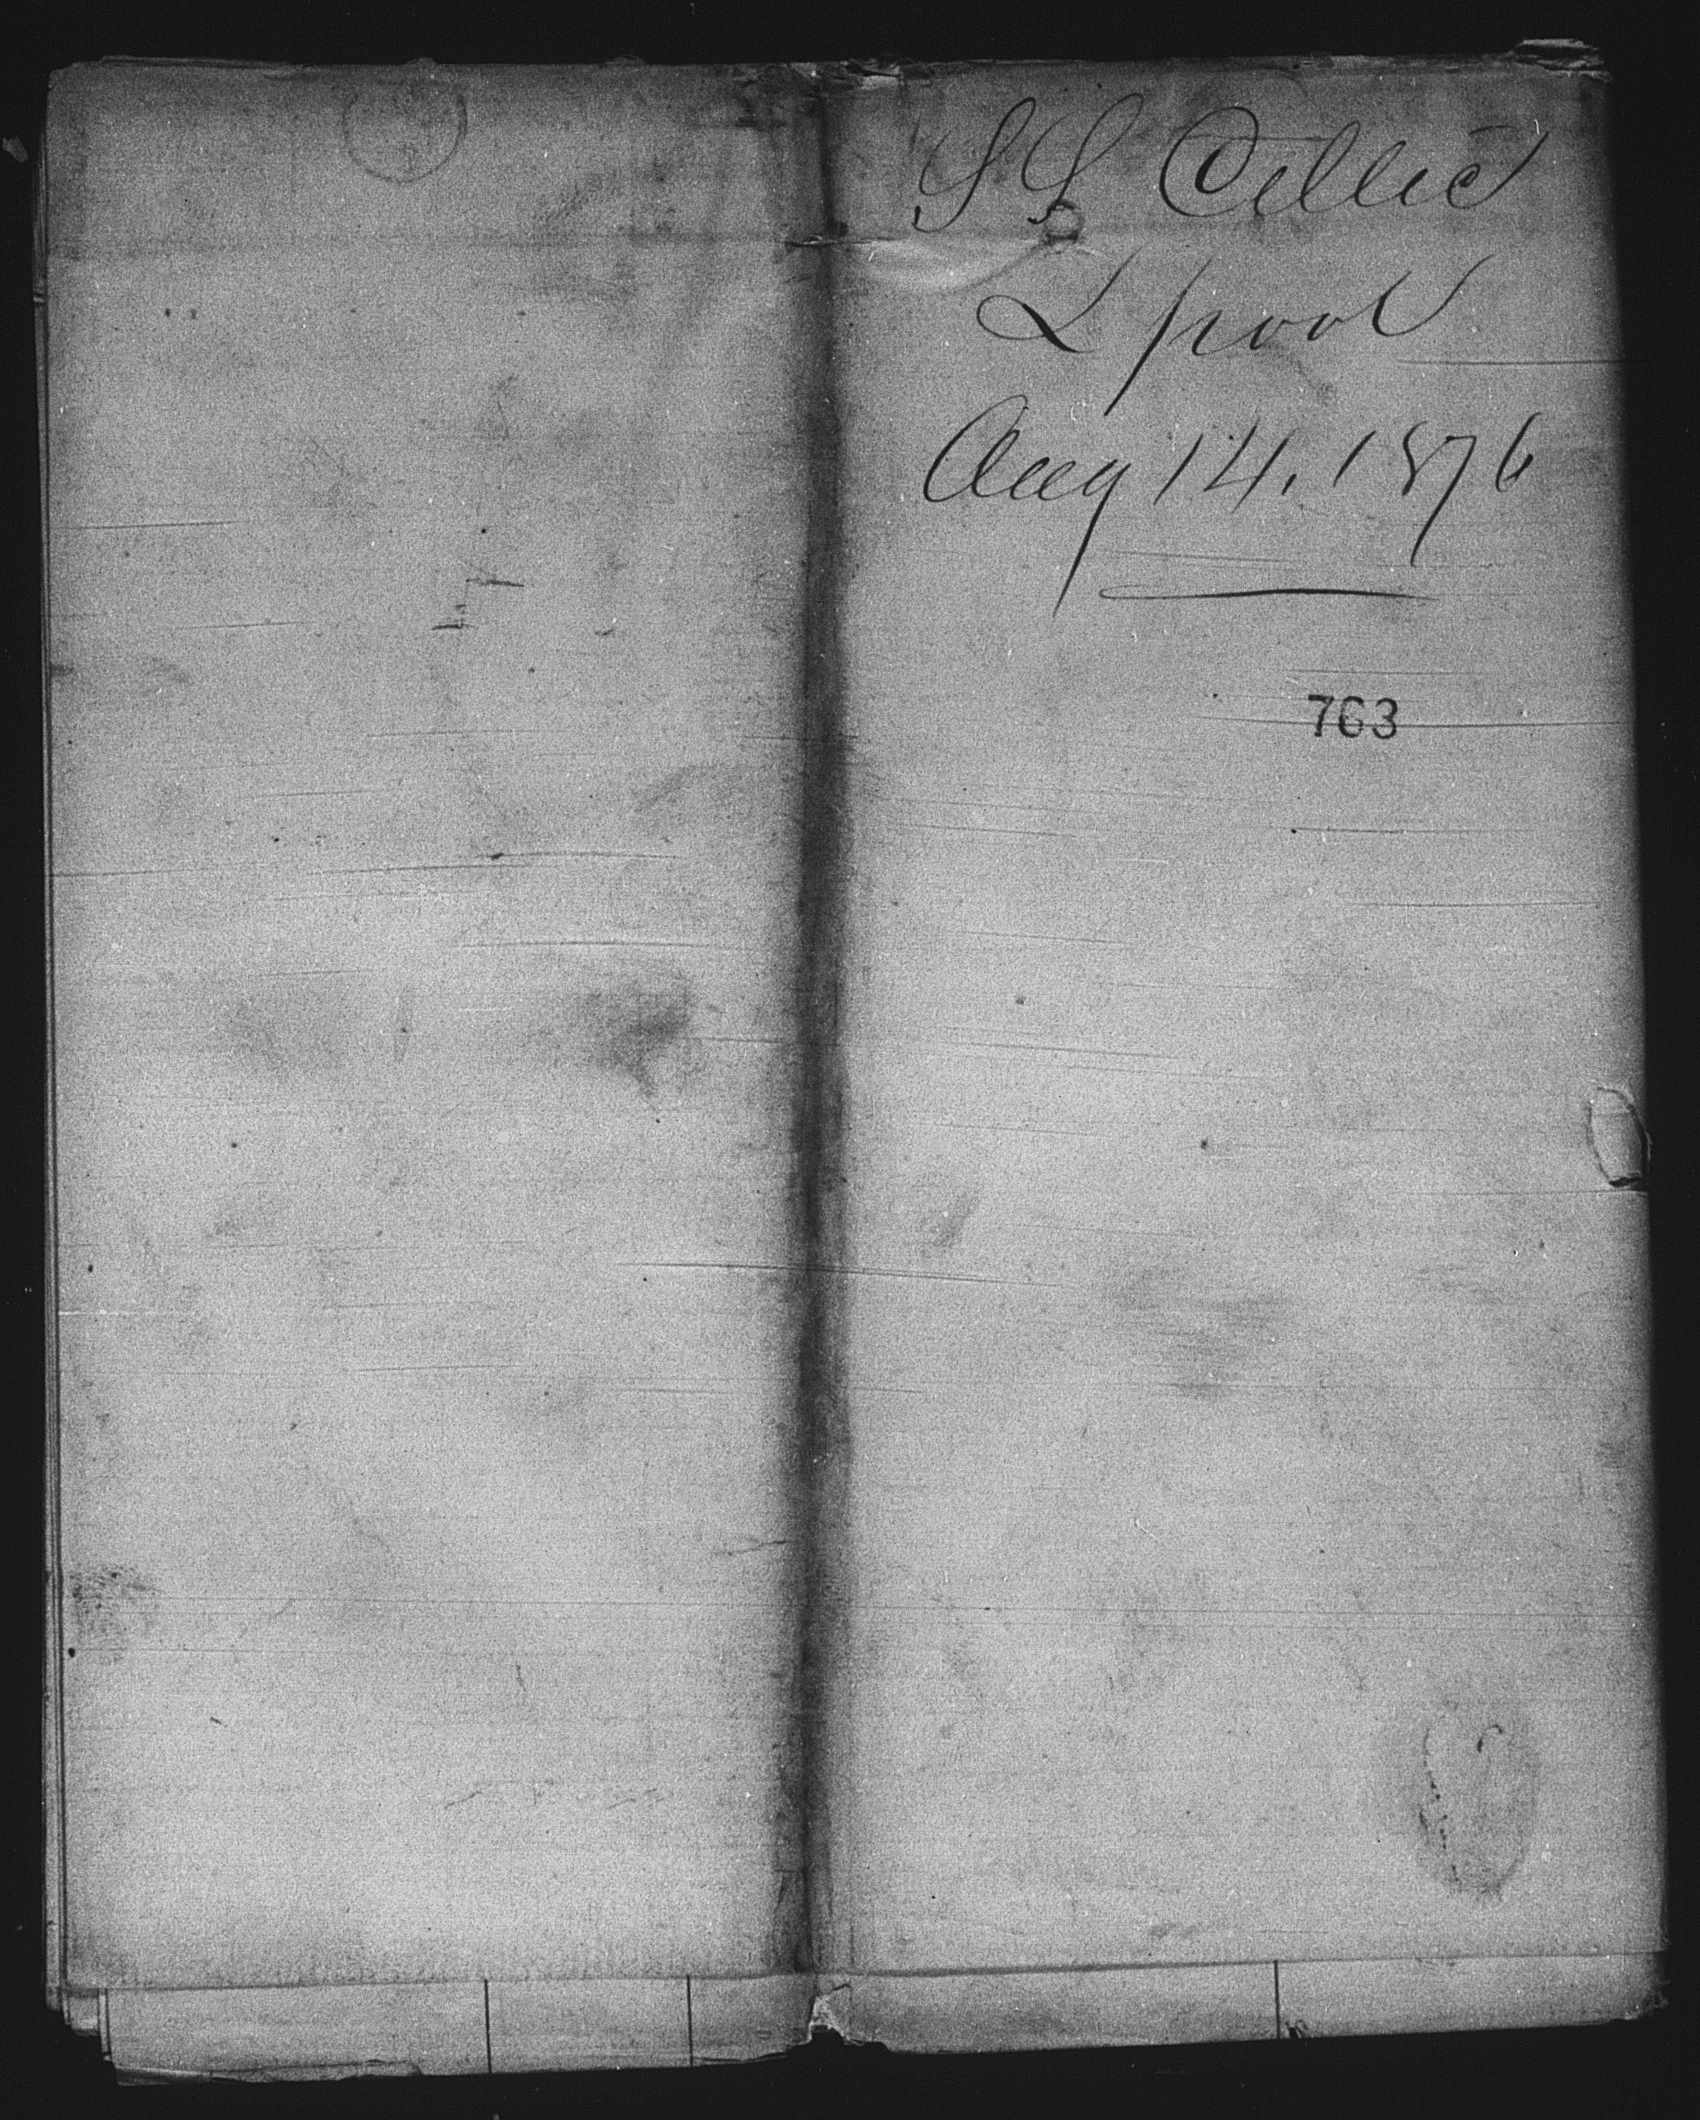 SS Celtic
Lpool
Aug 14. 1876
763